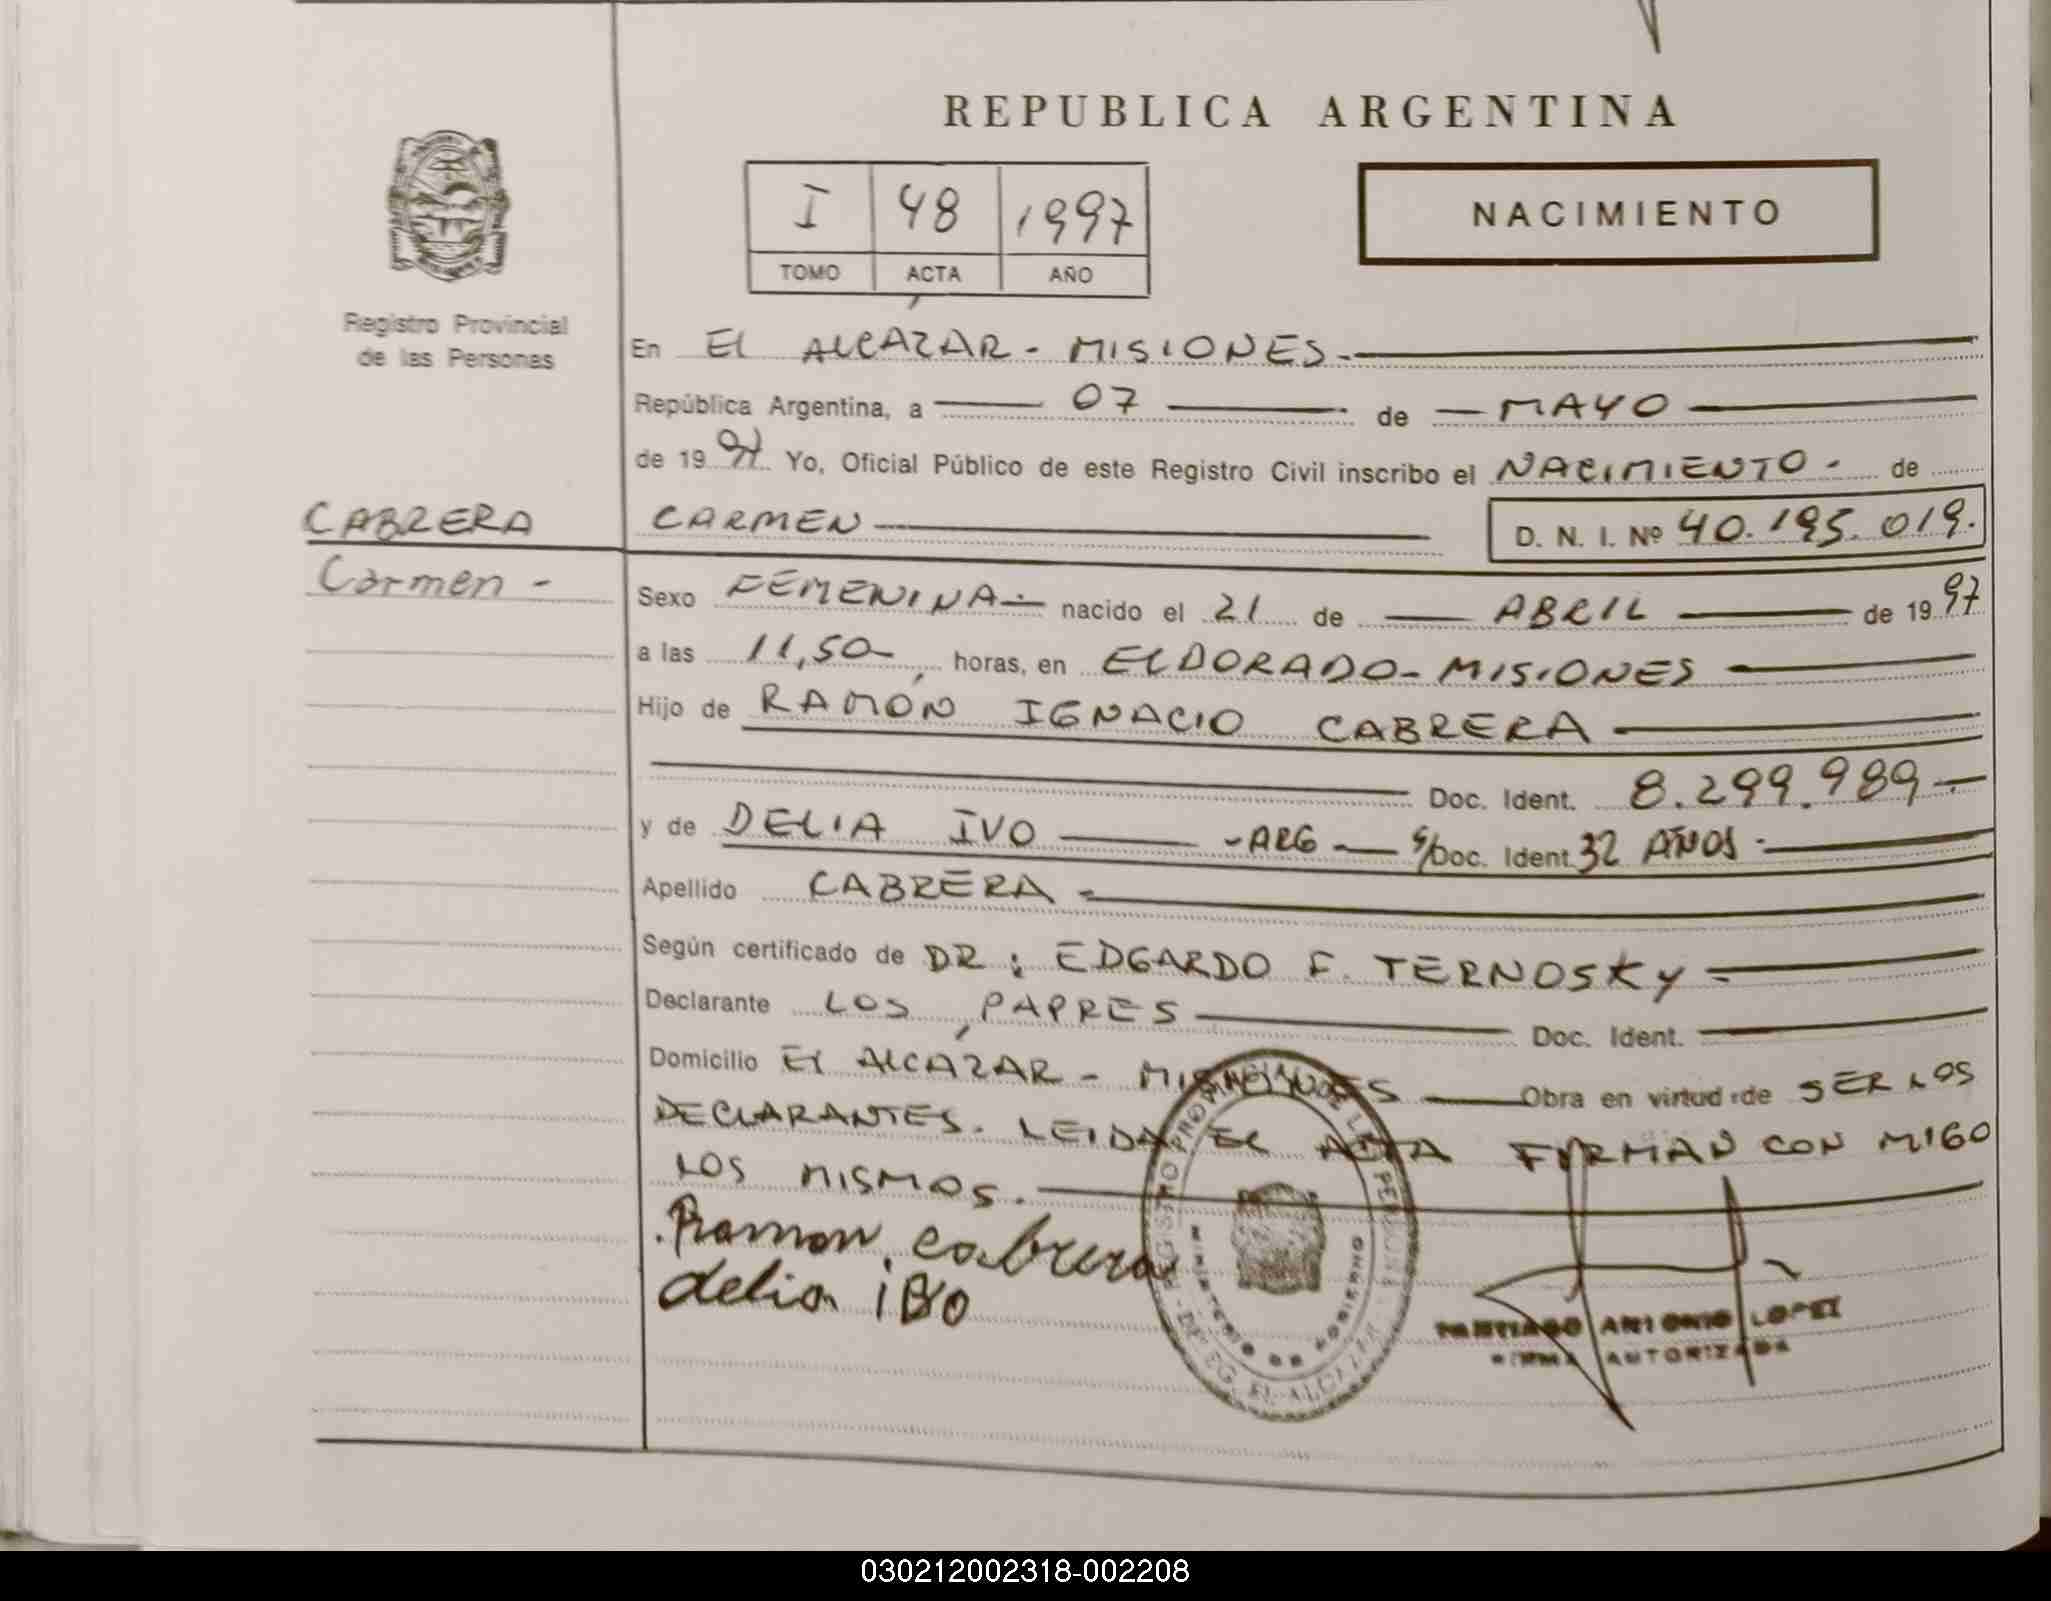 REPUBLICA ARGENTINA
I 48 1997
TOMO ACTA AÑO
NACIMIENTO
Registro Provincial
de las Personas
En El ALCAZAR - MISIONES.-
República Argentina, a 07 de MAYO
de 1997 Yo, Oficial Público de este Registro Civil inscribo el NACIMIENTO - de
CABRERA
Carmen -
CARMEN D. N. I. Nº 40.195.019.
Sexo FEMENINA-. nacido el 21 de ABRIL de 1997
a las 11,50- horas, en ELDORADO - MISIONES
Hijo de RAMÓN IGNACIO CABRERA
Doc. Ident. 8.299.989 -
y de DELIA IVO - ARG - s/Doc. Ident. 32 AÑOS -
Apellido CABRERA -
Según certificado de DR: EDGARDO F. TERNOSKY -
Declarante LOS PAPRES Doc. Ident.
Domicilio El ALCAZAR - MISIONES Obra en virtud de SER LOS
DECLARANTES. LEIDA EL ACTA FIRMAN CON MIGO
LOS MISMOS.
Ramon Cabrera
delia iBo
REGISTRO PROVINCIAL DE LAS PERSONAS
MINISTERIO DE GOBIERNO
EL ALCAZAR
SANTIAGO ANTONIO LOPEZ
FIRMA AUTORIZADA
030212002318-002208